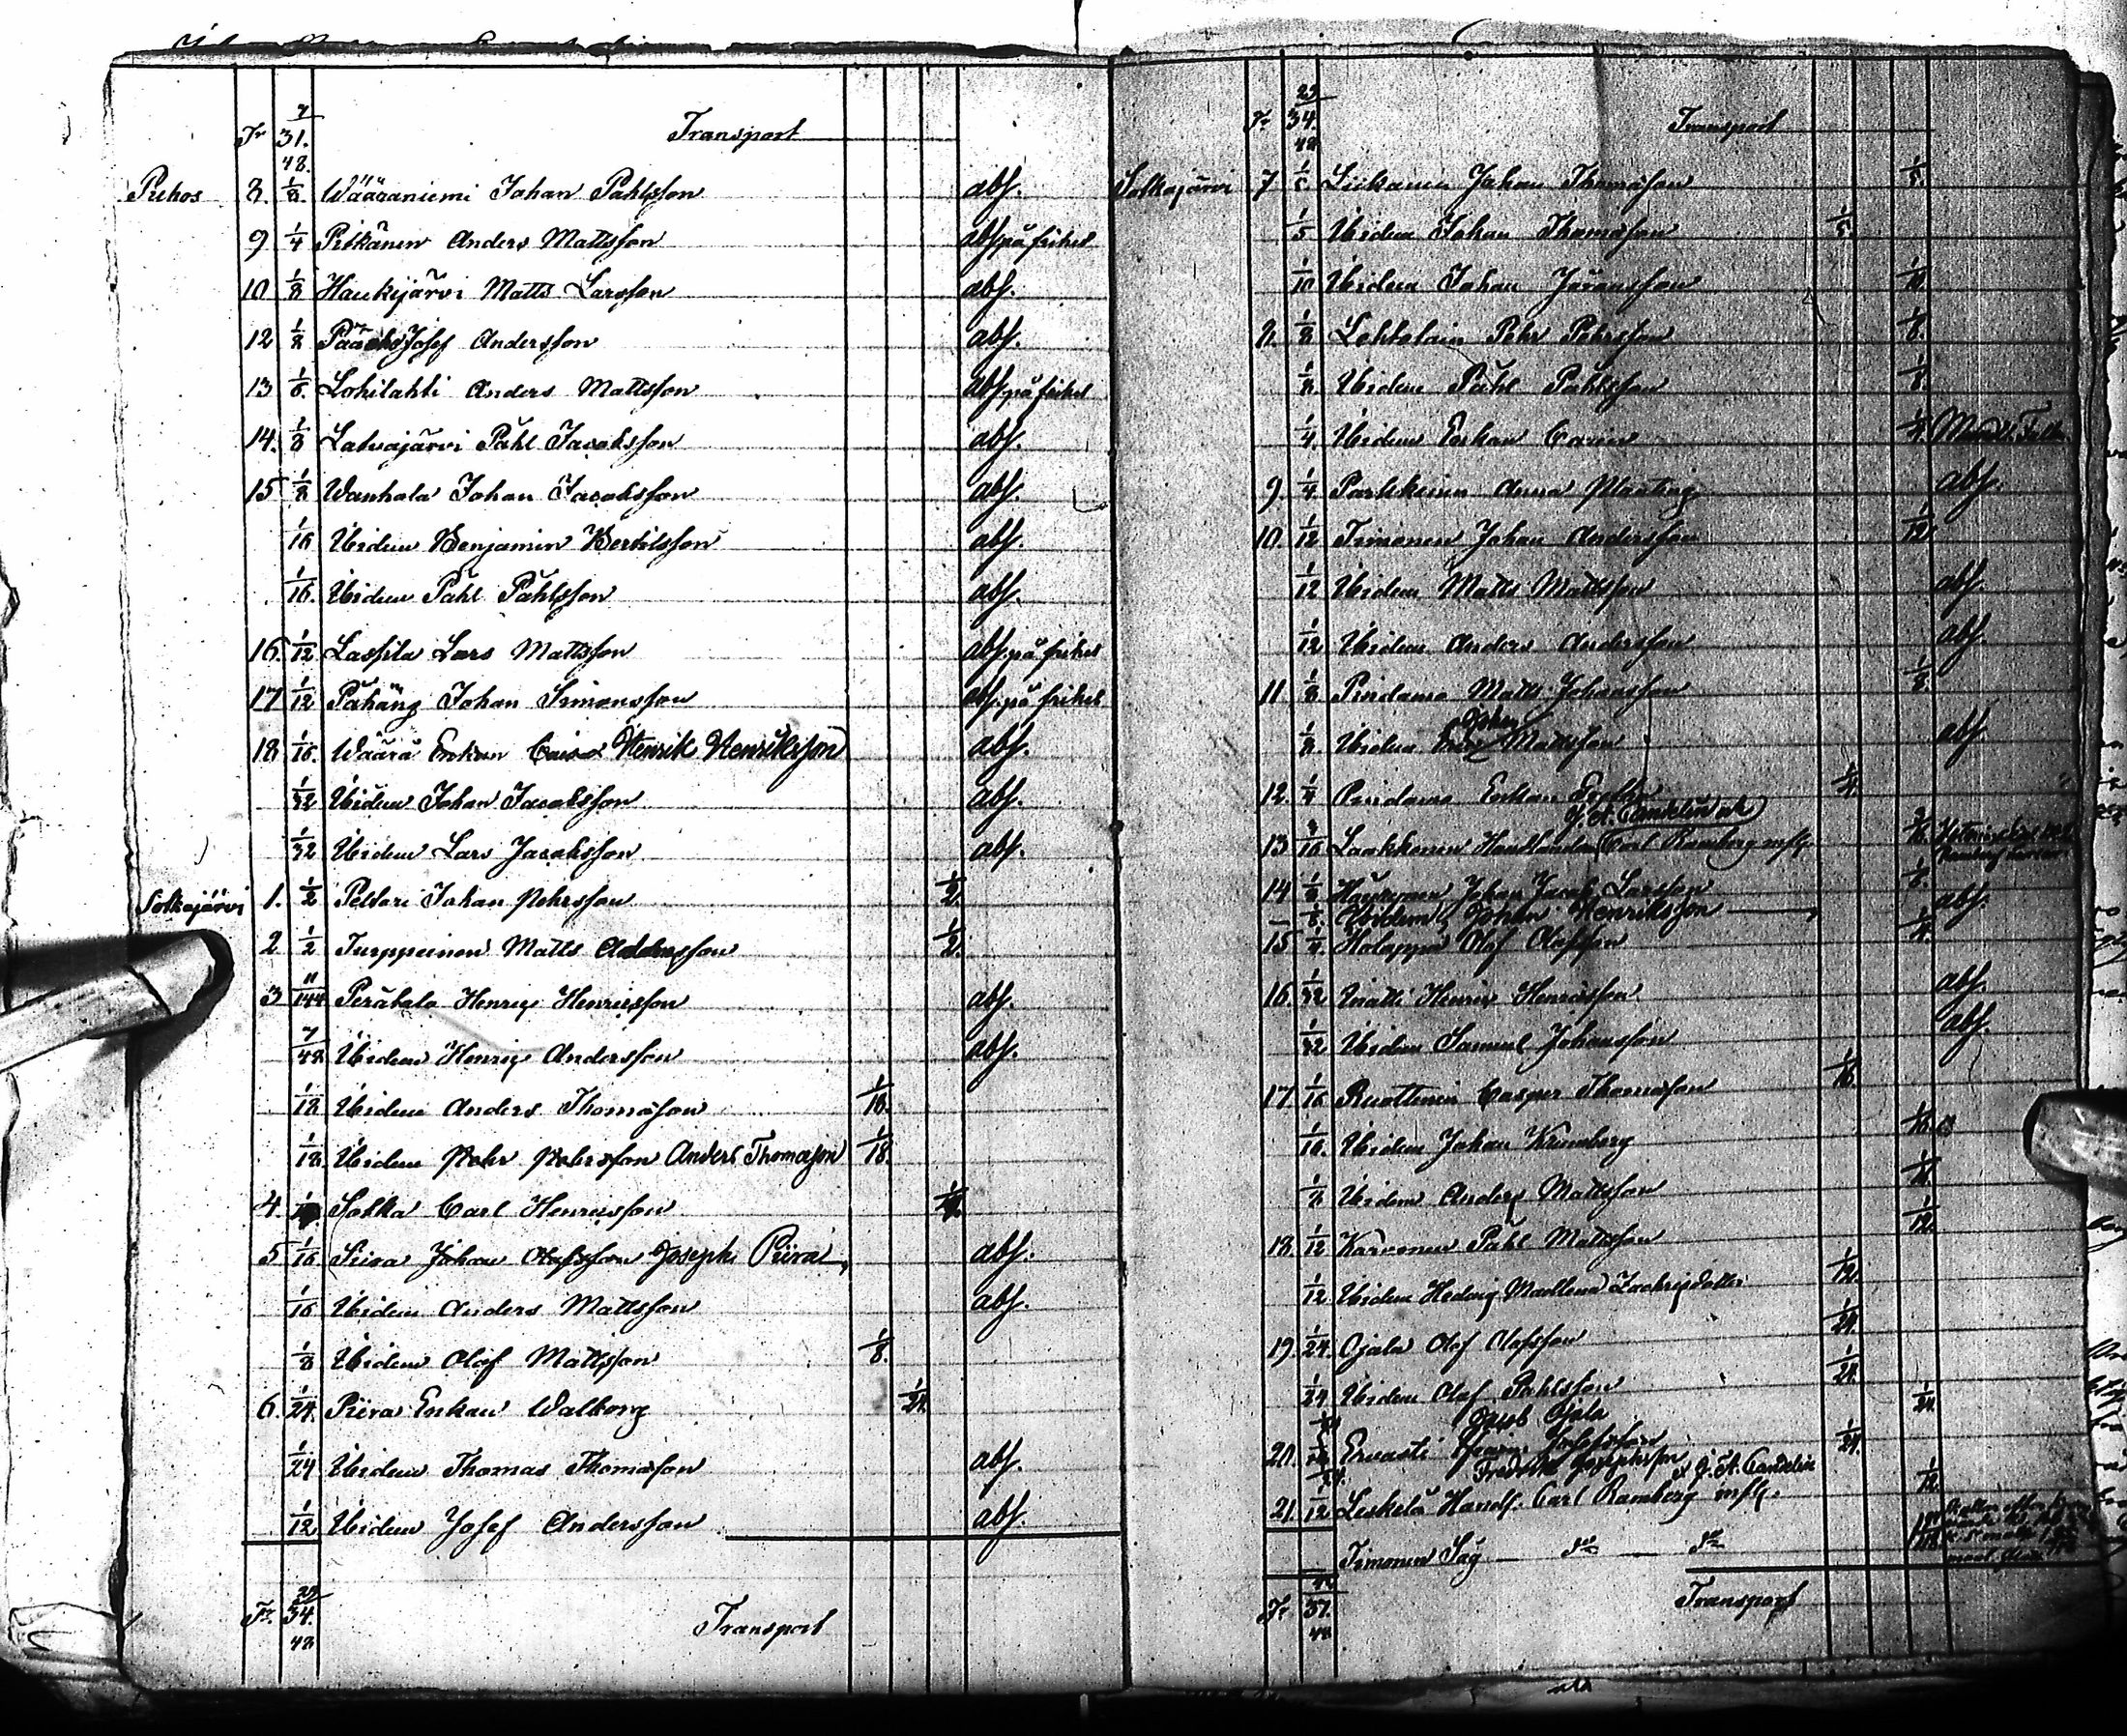 Tr 31. 7/48. Transport
Puhos 8. 1/8. Wääräniemi Johan Påhlsson abs.
9 1/4 Pitkänen Anders Mattsson abs på frihet
10 1/8 Haukijärvi Matts Larsson abs.
12 1/8 Josef Andersson abs.
13 1/8. Lohilahti Anders Mattsson abs på frihet
14. 1/8 Latvajärvi Påhl Jacobsson abs.
15 1/8 Wanhala Johan Jacobsson abs.
1/16 Ibidem Benjamin Bertilsson abs.
1/16. Ibidem Påhl Påhlsson abs.
16. 1/12 Lassila Lars Mattsson abs. på frihet
17 1/12 Johan Simonsson abs. på frihet
18 1/16. Wäärä Enkan Caisa Henrik Henriksson abs.
1/32 Ibidem Johan Jacobsson abs.
1/32 Ibidem Lars Jacobsson abs.
Sotkajärvi 1. 1/2 Peltari Johan Pehrsson 1/2.
2 1/2 Turppeinen Matts Andersson 1/2.
3 11/144 Perätalo Henrix Henricsson abs.
7/48 Ibidem Henrix Andersson abs.
1/18 Ibidem Anders Thomasson 1/18.
1/18 Ibidem Pehr Pehrsson Anders Thomasson 1/18.
4. Sotka Carl Henricsson
5 1/16 Piira Johan Olofsson Joseph Piira abs.
1/16 Ibidem Anders Mattsson abs.
1/8 Ibidem Olof Mattsson 1/8.
6. 1/24. Piira Enkan Walborg 1/24.
1/24 Ibidem Thomas Thomasson abs.
1/12 Ibidem Josef Andersson abs.
Tr. 34. 29/48 Transport
Tr 34. 29/48 Transport
Sotkajärvi 7 1/5 Liikanen Johan Thomasson 1/5.
1/5 Ibidem Johan Thomasson 1/5.
1/10 Ibidem Johan Göransson 1/10.
8. 1/8 Lehtolain Pehr Pehrsson 1/8.
1/8. Ibidem Påhl Påhlsson 1/8.
1/4. Ibidem Enkan Carin 1/4.
9. 1/4. Parkkinen Anna abs.
10. 1/12 Timonen Johan Andersson 1/12
1/12 Ibidem Matts Mattsson abs.
1/12 Ibidem Anders Andersson abs.
11 1/8 Pindama Matts Johansson 1/8.
Johan
1/8. Ibidem Mattsson abs.
12. 1/4 Pindama Enkan 1/4
J. A. Candelin
13 3/16 Laakkonen Handlanden Carl Ramberg 3/16.
14 1/8 Johan Jacob Larsson 1/8.
1/8. Ibidem Johan Henriksson abs.
15 1/4. Holappa Olof Olofsson 1/4.
16. 1/32 Henrix Henricsson abs.
1/32 Ibidem Samuel Johansson abs.
17. 1/16 Ruottinen Casper Thomasson 1/16.
1/16. Ibidem Johan 1/16.
1/8 Ibidem Anders Mattsson
18. 1/12 Karvonen Påhl Mattsson 1/12.
1/12 Ibidem Hedvig Madlena Zachrisdotter 1/12.
19. 1/24. Ojala Olof Olofsson 1/24.
1/24 Ibidem Olof Påhlsson 1/24.
Jacob Ojala 1/24
20. Ervasti Josefsson 1/24.
Fredrik Josephsson J. A. Candelin
21. 1/12 Leskelä Handl. Carl Ramberg 1/12.
Timonen Såg
Tr 37. Transport